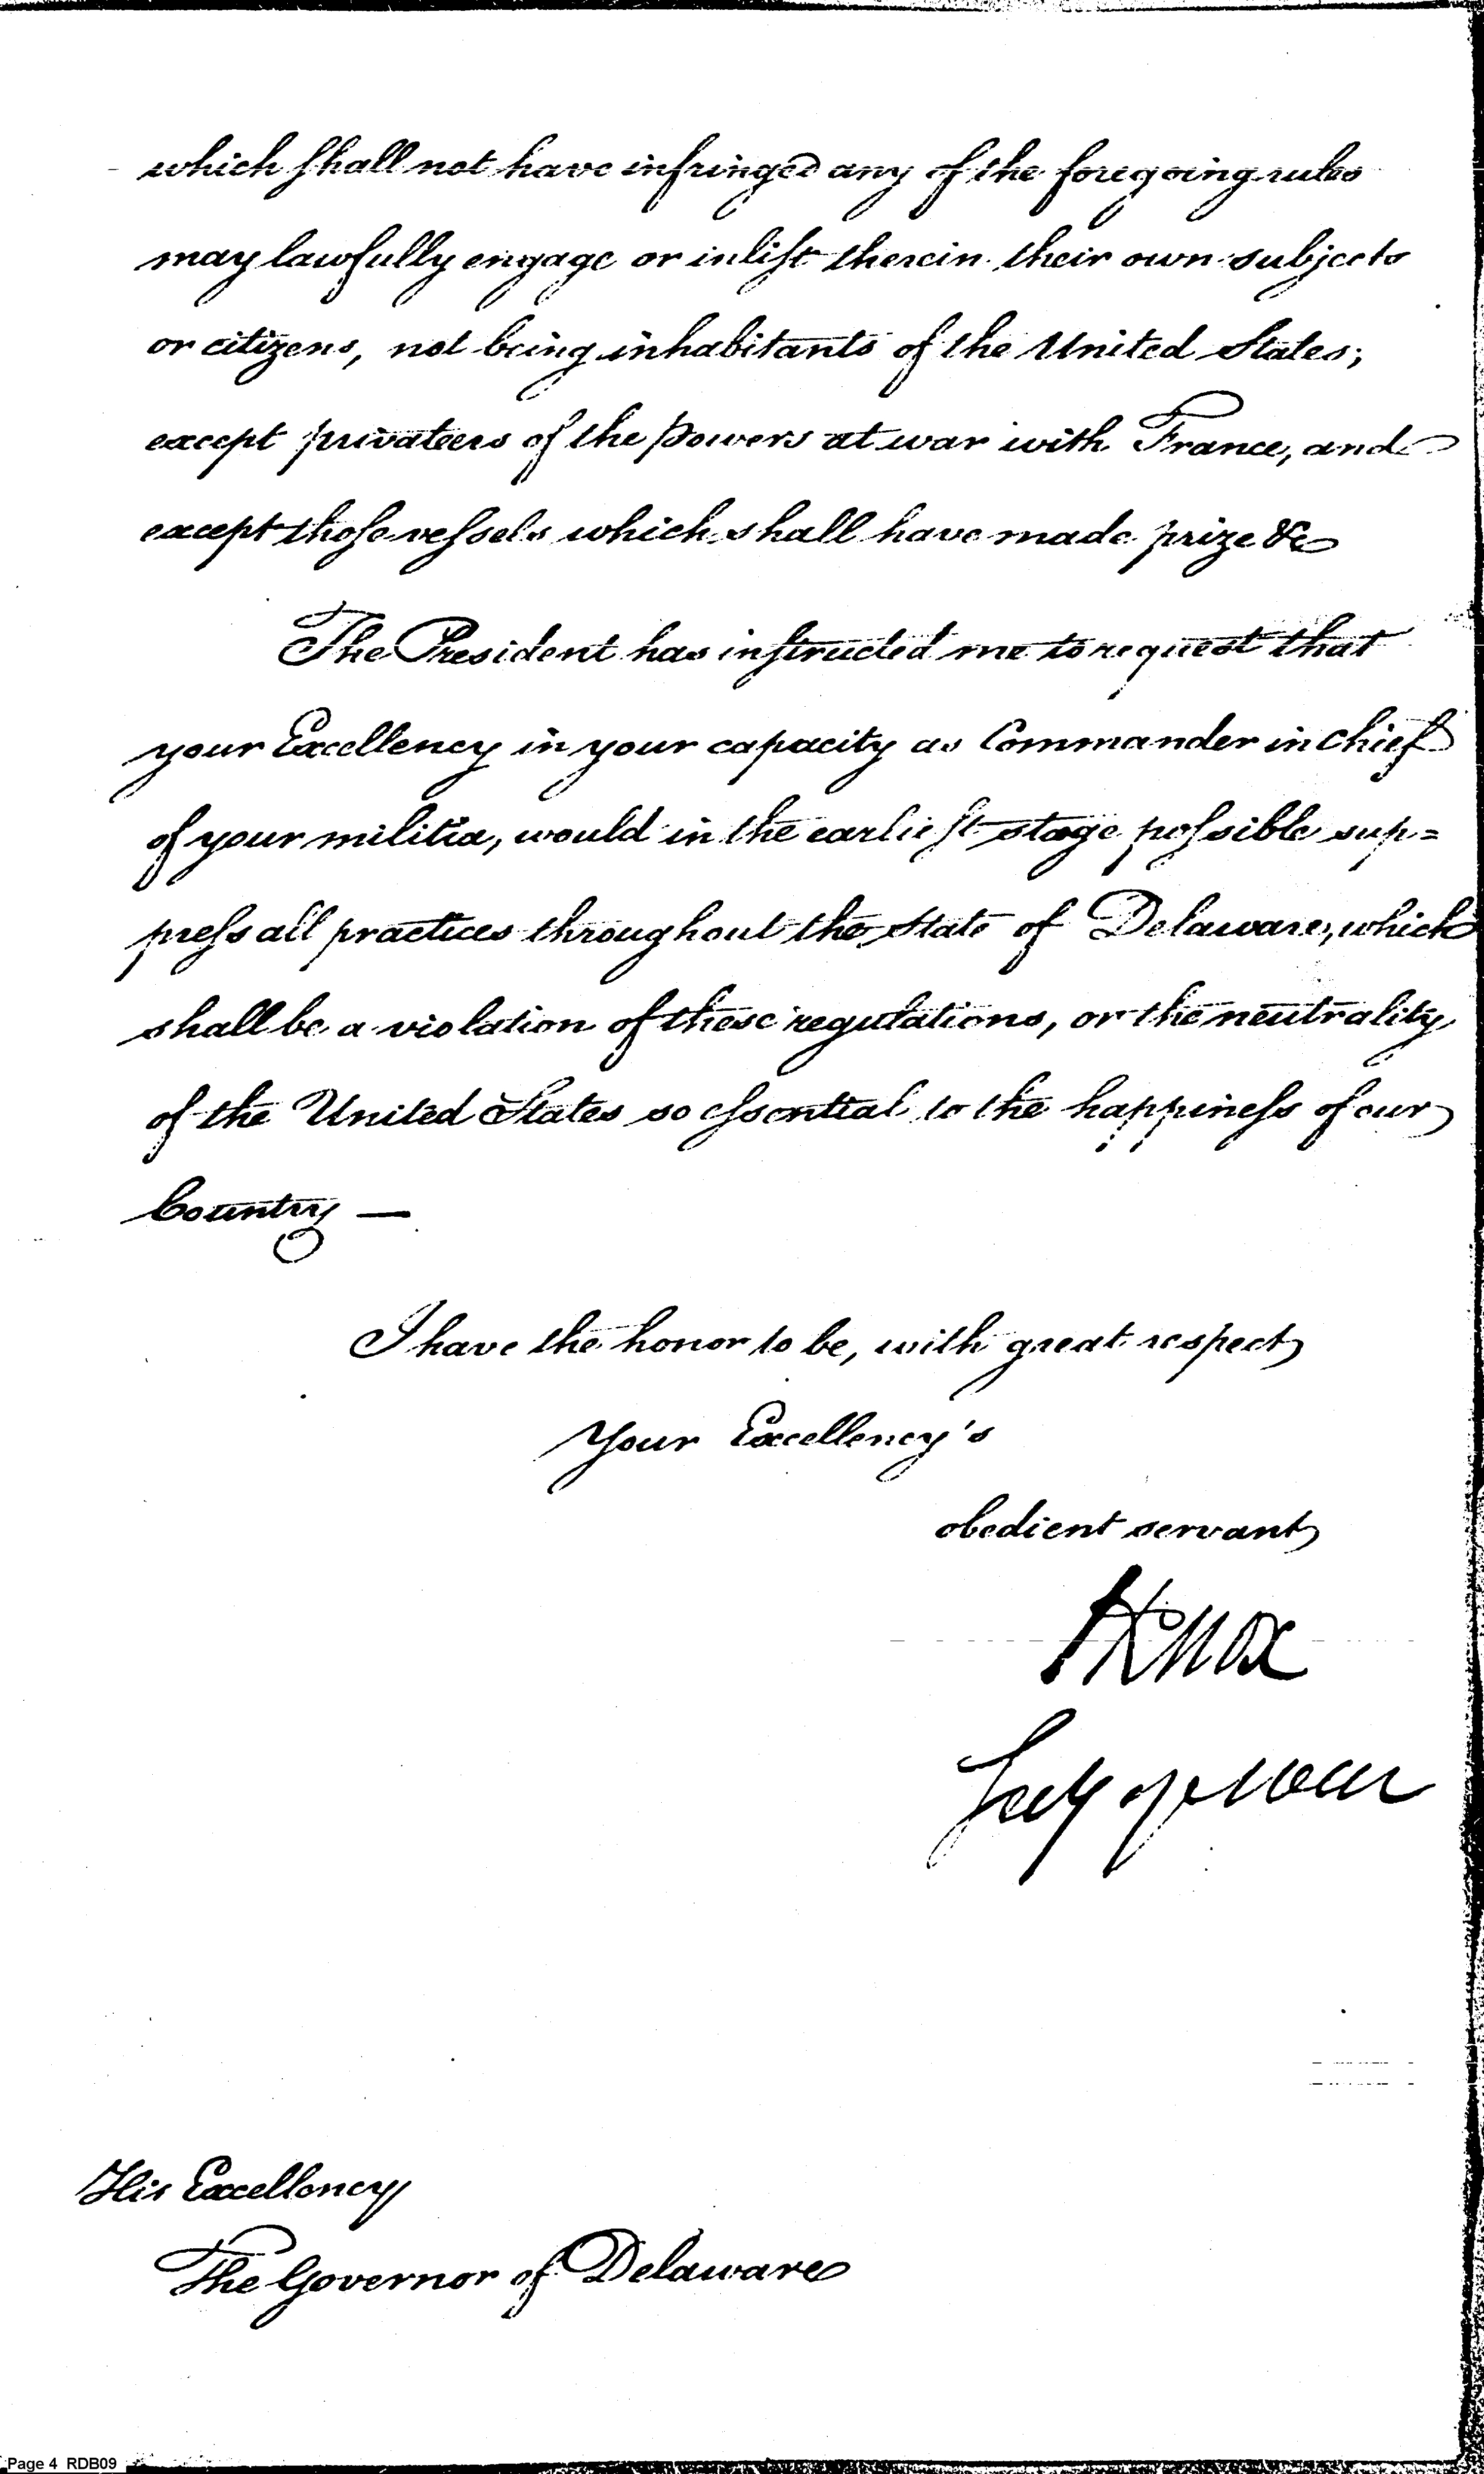 which shall not have infringed any of the foregoing rules
may lawfully engage or inlist therein their own subjects
or citizens, not being inhabitants of the United States;
except privateers of the powers at war with France, and
except those vessels which shall have made prize &c
The President has instructed me to request that
your Excellency in your capacity as Commander in chief
of your militia, would in the earliest stage possible sup=
press all practices throughout the State of Delaware, which
shall be a violation of these regulations, or the neutrality
of the United States so essential to the happiness of our
Country —
I have the honor to be, with great respect
Your Excellency's
obedient servant
HKnox
Secy of war
His Excellency
The Governor of Delaware
Page 4 RDB09